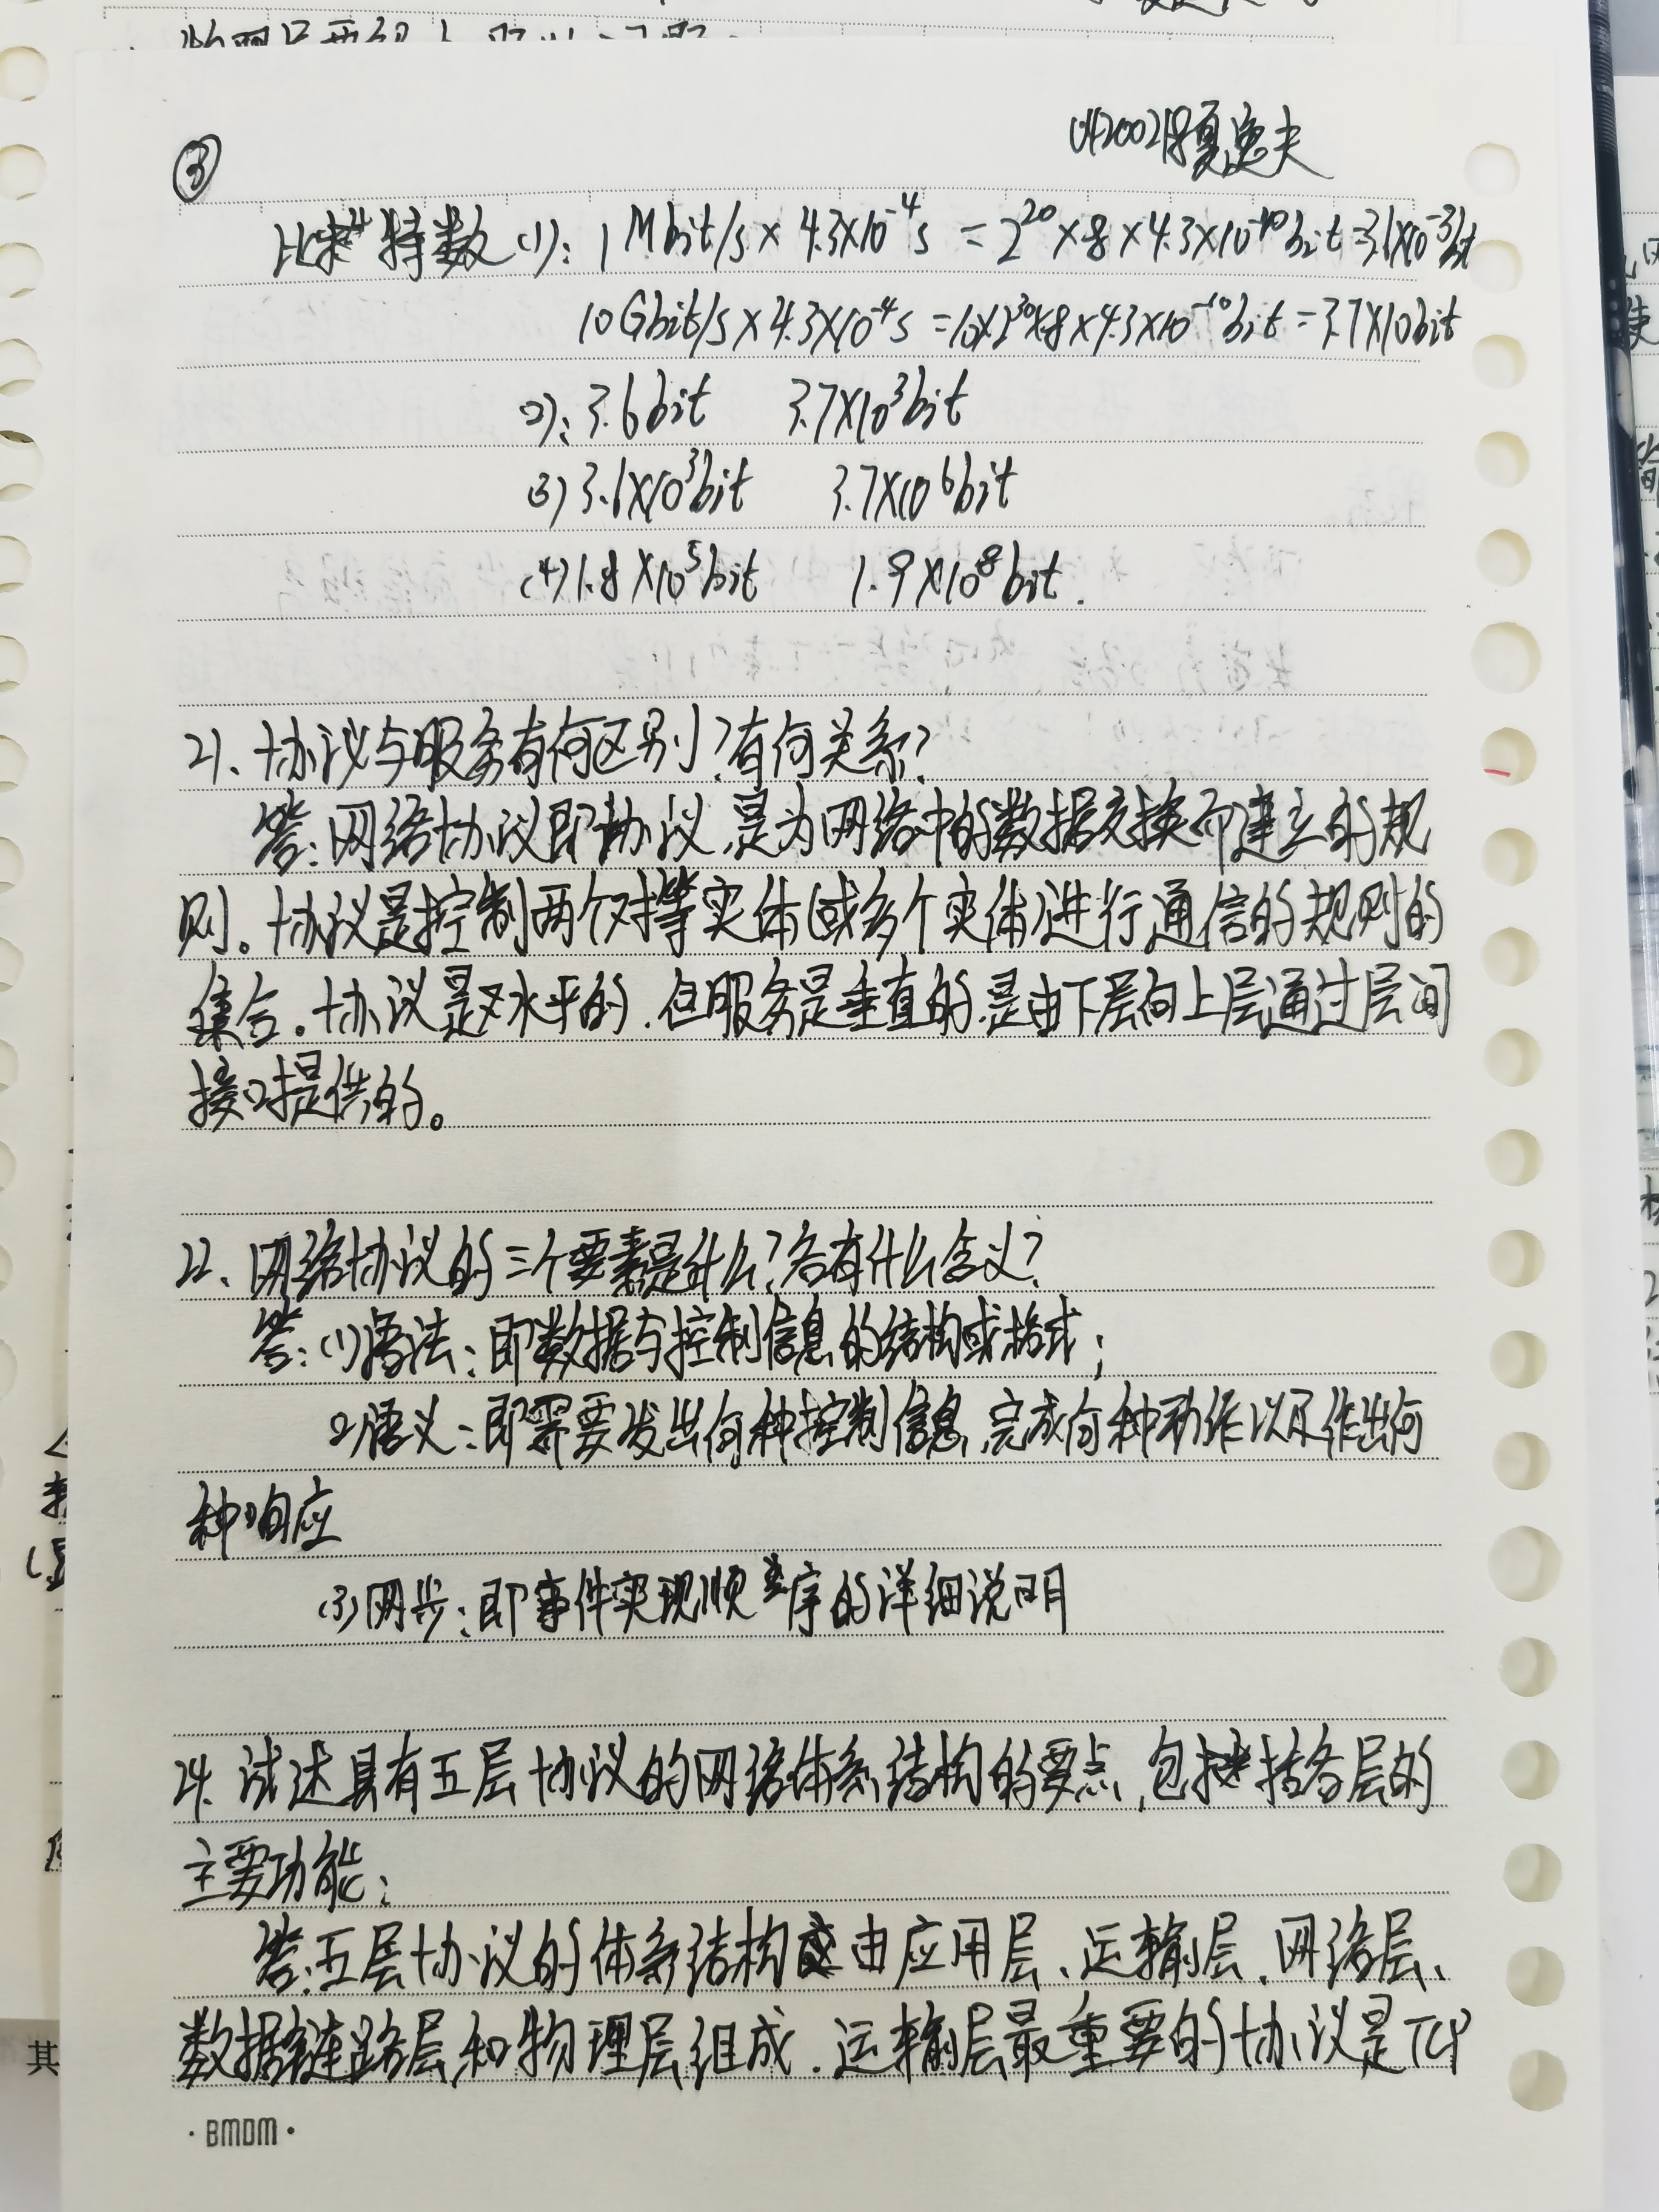 ③
04200218夏逸夫
比特数(1): 1Mbit/s×4.3×10⁻⁴s=2²⁰×8×4.3×10⁻¹⁰bit=3.1×10⁻³bit
10Gbit/s×4.3×10⁻⁴s=10×2³⁰×8×4.3×10⁻¹⁰bit=3.7×10bit
(2): 3.6bit 3.7×10³bit
(3) 3.1×10³bit 3.7×10⁶bit
(4) 1.8×10⁵bit 1.9×10⁸bit.
21、协议与服务有何区别?有何关系?
答:网络协议即协议,是为网络中的数据交换而建立的规
则。协议是控制两个对等实体(或多个实体)进行通信的规则的
集合。协议是水平的,但服务是垂直的,是由下层向上层通过层间
接口提供的。
22、网络协议的三个要素是什么?各有什么含义?
答:(1)语法:即数据与控制信息的结构或格式;
(2)语义:即需要发出何种控制信息,完成何种动作以及作出何
种响应
(3)网步:即事件实现顺序的详细说明
24、试述具有五层协议的网络体系结构的要点,包括各层的
主要功能:
答:五层协议的体系结构由应用层、运输层、网络层、
数据链路层和物理层组成.运输层最重要的协议是TCP
·BMDM·
其